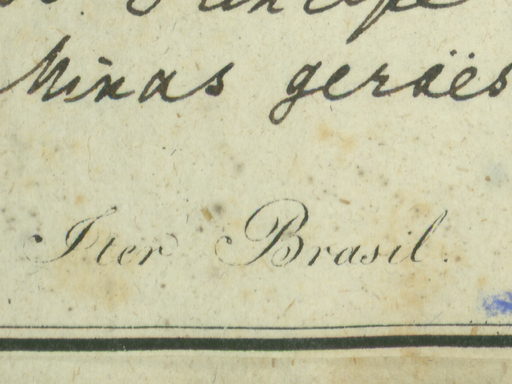 Principe
Minas geraës
Iter Brasil.